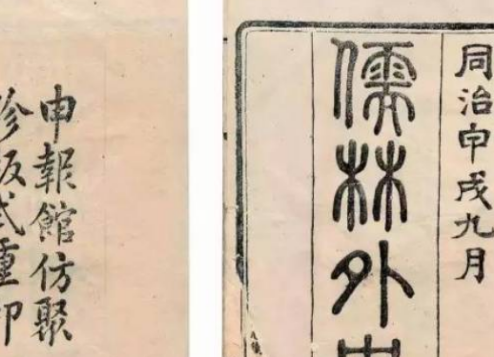 同治甲戌九月
儒林外
申報館仿聚
珍版式重印